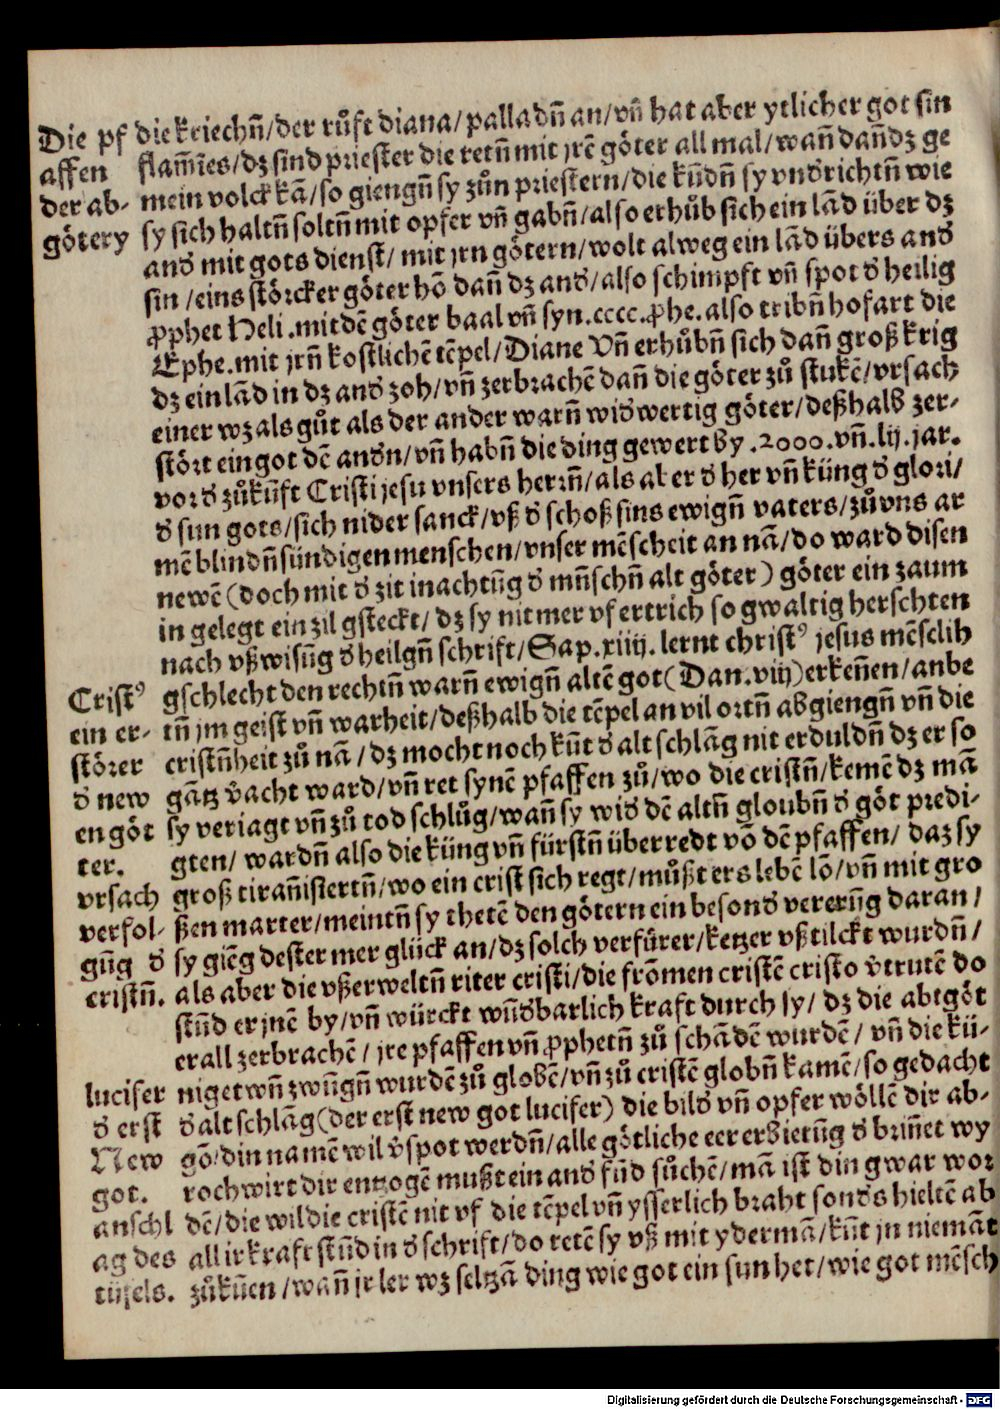 Die pfaffen der abgötery
die kriechñ/der růft diana/palladñ an/vñ hat aber ytlicher got sin
flam̃ies/dz sind priester die retñ mit jrē göter all mal/wañ dañ dz ge
mein volck kā/so giengñ sy zům priestern/die kũdñ sy vnďrichtñ wie
sy sich haltñ soltñ mit opfer vñ gabñ/also erhůb sich ein lād über dz
anď mit gots dienst/ mit jrn götern/wolt alweg ein lād übers anď
sin /eins störcker göter hō dañ dz anď/also schimpft vñ spot ď heilig
ꝓphet Heli .mit dē göter baal vñ syn.cccc.ꝓhe.also tribñ hofart die
Ephe.mit jrñ kostlichē tēpel/Diane Vñ erhůbñ sich dañ groß krig
dz ein lād in dz anď zoh/vñ zerbrachē dañ die göter zů stukē/vrsach
einer wz als gůt als der ander warñ widwertig göter/deßhalb zer-
stört ein got dē anďn/vñ habñ die ding gewert by .2000.vñ.lij.jar.
vor ď zůkũft Cristi jesu vnsers herrñ/als aber ď her vñ küng ď glori/
ď sun gots/sich nider sanck/vß ď schoß sins ewigñ vaters/zů vns ar
mē blindñ sündigen menschen/vnser mēscheit an nā/do ward disen
newē (doch mit ď zit in achtũg ď mñschñ alt göter) göter ein zaum
in gelegt ein zil gsteckt/ dz sy nit mer vf ertrich so gwaltig herschten
nach vßwisũg ď heilgñ schrift/Sap.xiiij.lernt christ⁹ jesus mēsclih
gschlecht den rechtñ warñ ewigñ altē got(Dan.viij)erkeñen/anbe
tñ jm geist vñ warheit/deßhalb die tēpel an vil ortñ abgiengñ vñ die
cristñheit zů nā /dz mocht noch kũt ď alt schlāg nit erduldñ dz er so
gātz v̄acht ward/vñ ret synē pfaffen zů/wo die cristñ/kemē dz mā
sy veriagt vñ zů tod schlůg/wañ sy wid dē altñ gloubñ ď göt predi-
gten/ wardñ also die küng vñ fürstñ überredt vō dē pfaffen/ daz sy
groß tirañisiertñ/wo ein crist sich regt/můßt ers lebē lō/vñ mit gro
ßen marter/meintñ sy thetē den götern ein besonď vererũg daran/
sy giēg dester mer glück an/dz solch verfürer/ketzer vßtilckt wurdñ/
als aber die vßerweltñ riter cristi/die frōmen cristē cristo v̄trutē do
stũd er jnē by/vñ würckt wũďbarlich kraft durch sy/ dz die abtgöt
erall zerbrachē / jre pfaffen vñ ꝓphetñ zů schādē wurdē/ vñ die kü-
nige twñ zwũgñ wurdē zů globē/vñ zů cristē globñ kamē/so gedacht
ď alt schlāg(der erst new got lucifer) die bilď vñ opfer wöllē dir ab-
gō/din namē wil v̄spot werdñ/alle götliche eer erbietũg ď briñet wy
roch wirt dir entzogē mußt ein anď fũd sůchē/mā ist din gwar wor
dē/die wil die cristē nit vf die tēpel vñ ysserlich braht sonďs hieltē ab
all ir kraft stũd in ď schrift/do retē sy vß mit yderman/kũt jn niemāt
zůkũen /wañ jr ler wz seltzā ding wie got ein sun het/wie got mēsch
Crist⁹
ein er-
störer
ď new
en göt
ter.
vrsach
verfol-
gũg ď
cristñ.
lucifer
ď erst
New
got.
anschl
ag des
tüfels.
Digitalisierung gefördert durch die Deutsche Forschungsgemeinschaft - DFG